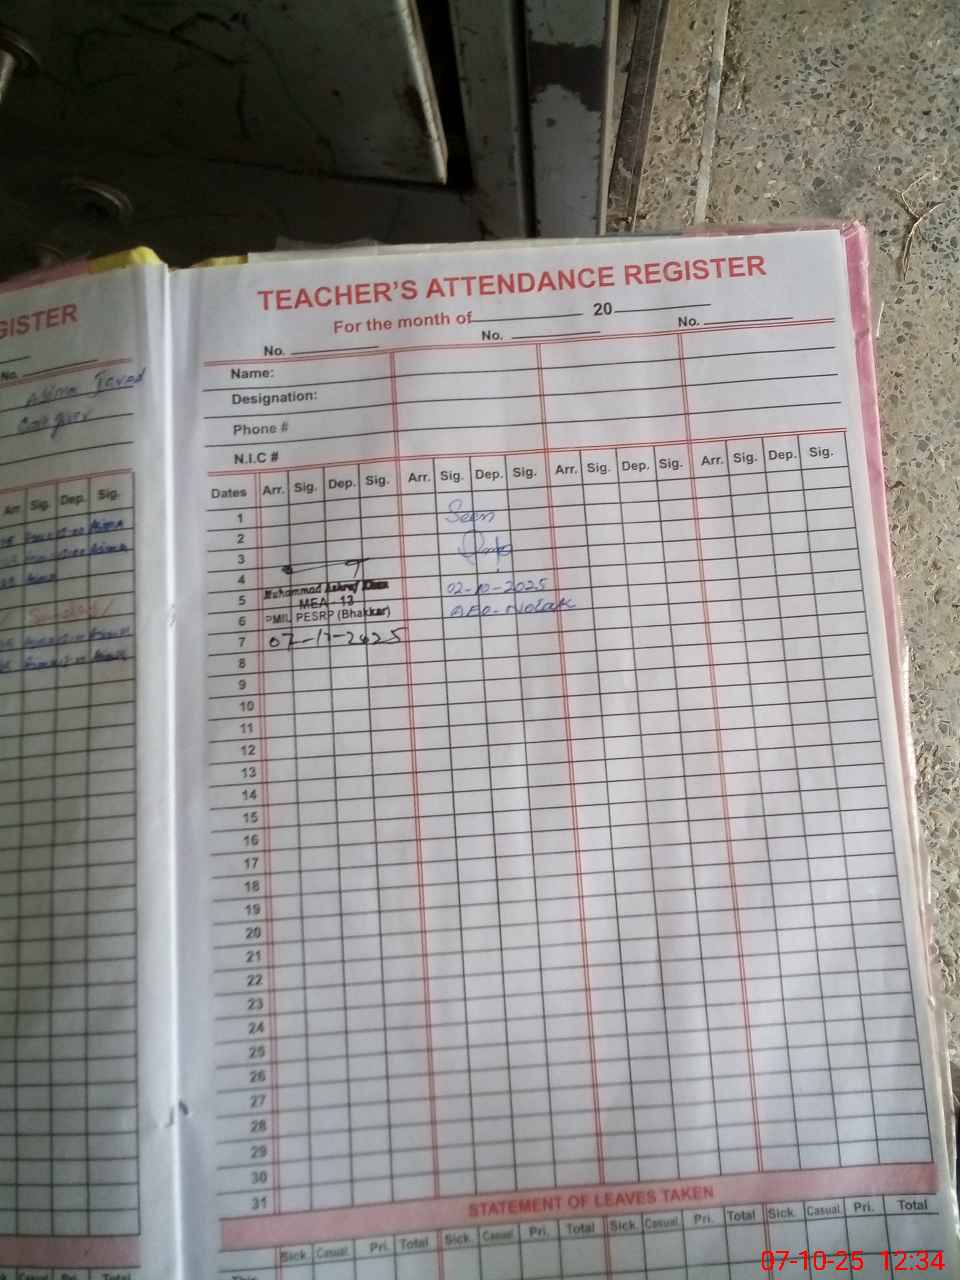 GISTER
No.
Caregiver
Arr. Sig. Dep. Sig.
Sunday
TEACHER'S ATTENDANCE REGISTER
For the month of 20
No. No. No.
Name:
Designation:
Phone #
N.I.C #
Dates Arr. Sig. Dep. Sig. Arr. Sig. Dep. Sig. Arr. Sig. Dep. Sig. Arr. Sig. Dep. Sig.
1 Seen
2
3
4
Muhammad Ashraf Khan 02-10-2025
5 MEA - 13 AEO-
6 PMIU, PESRP (Bhakkar)
7
8
9
10
11
12
13
14
15
16
17
18
19
20
21
22
23
24
25
26
27
28
29
30
31
STATEMENT OF LEAVES TAKEN
Sick. Casual. Pri. Total Sick. Casual. Pri. Total Sick. Casual. Pri. Total Sick. Casual. Pri. Total
This
07-10-25 12:34